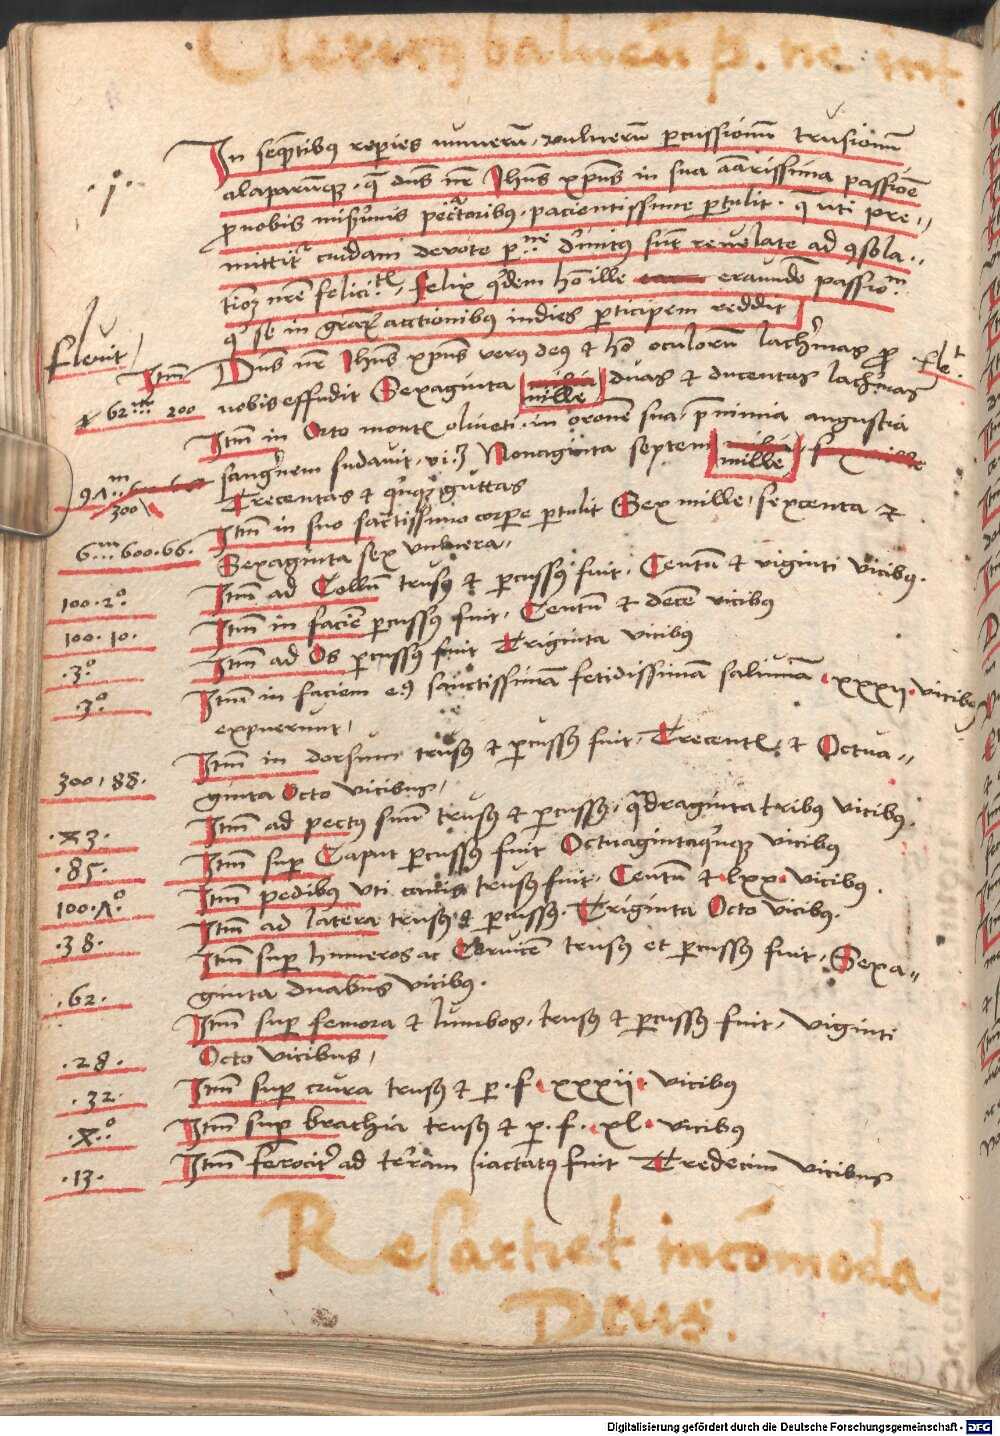 Clerus balneu p. ne int.
In seqtibus reperies numeru vulneru percussionu trusionu
.1.
alaparuque q dns nr Ihus xpus in sua amarissima passione
pro nobis mis'imis peccatoribus pacientissime pertulit q uti pre
mittit cuidam devote p diuinitus sunt reuelate ad consola
tionem nre felicit. Felix quidem ho ille eiusdem passionis
qui se in graru actionibus indies participem reddit
Fleuit
Item Dns nr Ihus xpus verus deus et ho oculoru lachrimas pro Fle.
62 m 200 nobis effudit Sexaginta mille duas et ducentas lachrimas
Item in Orto montis oliueti in orone sua p nimia angustia
97 m 300 sanguinem sudauit vi3 Nonaginta septem mille
Trecentas et quinque guttas
6 m 600.66. Item in suo sactissimo corpore pertulit Sex mille sexcenta et
Sexaginta sex vulnera
100.20 Item ad Collum trusus et percussus fuit Centu et viginti vicibus.
100.10. Item in facie percussus fuit Centu et dece vicibus
.30. Item ad Os percussus fuit Triginta vicibus
.30. Item in faciem eius sanctissima fetidissimam saliuam xxxij vicibus
expuerunt
300.88. Item in dorsum trusus et percussus fuit Trecentis et Octua
ginta Octo vicibus
.X3. Item ad pectus suum trusus et percussus quadraginta tribus vicibus.
.85. Item super Caput percussus fuit Octuagintaquinque vicibus
100.70. Item pedibus vti canis trusus fuit Centu et lxx vicibus.
.38. Item ad latera trusus et percussus Triginta Octo vicibus.
Item super humeros ac Ceruice trusus et percussus fuit Sexa
.62. ginta duabus vicibus.
Item super femora et lumbos trusus et percussus fuit viginti
.28. Octo vicibus
.32. Item super crura trusus et p. f. xxxij vicibus
.X0. Item super brachia trusus et p. f. xl vicibus
.13. Item ferociter ad terram iactatus fuit Tredecim vicibus
Resartiet incomoda
Deus.
Digitalisierung gefördert durch die Deutsche Forschungsgemeinschaft - DFG